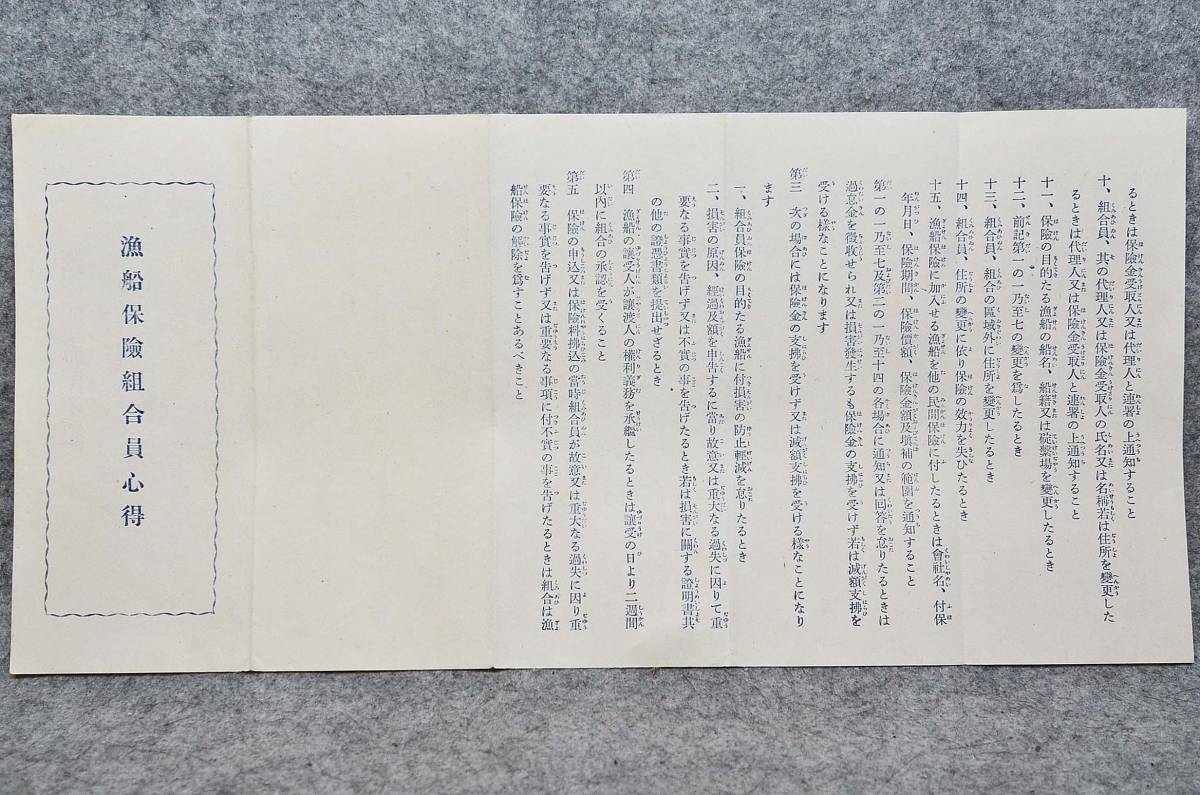 るときは保險金受取人又は代理人と連署の上通知すること
十、組合員、其の代理人又は保險金受取人の氏名又は名稱若は住所を變更した
るときは代理人又は保險金受取人と連署の上通知すること
十一、保險の目的たる漁船の船名、船籍又は碇繫場を變更したるとき
十二、前記第一の一乃至七の變更を爲したるとき
十三、組合員、組合の區域外に住所を變更したるとき
十四、組合員、住所の變更に依り保險の效力を失ひたるとき
十五、漁船保險に加入せる漁船を他の民間保險に付したるときは會社名、付保
年月日、保險期間、保險價額、保險金額及塡補の範圍を通知すること
第一の一乃至七及第二の一乃至十四の各場合に通知又は回答を怠りたるときは
過怠金を徵收せられ又は損害發生するも保險金の支拂を受けず若は減額支拂を
受ける樣なことになります
第三 次の場合には保險金の支拂を受けず又は減額支拂を受ける樣なことになり
ます
一、組合員保險の目的たる漁船に付損害の防止輕減を怠りたるとき
二、損害の原因、經過及額を申告するに當り故意又は重大なる過失に因りて重
要なる事實を告げず又は不實の事を告げたるとき若は損害に關する證明書其
の他の證憑書類を提出せざるとき
第四 漁船の讓受人が讓渡人の權利義務を承繼したるときは讓受の日より二週間
以內に組合の承認を受くること
第五 保險の申込又は保險料拂込の當時組合員が故意又は重大なる過失に因り重
要なる事實を告げず又は重要なる事項に付不實の事を告げたるときは組合は漁
船保險の解除を爲すことあるべきこと
漁船保險組合員心得